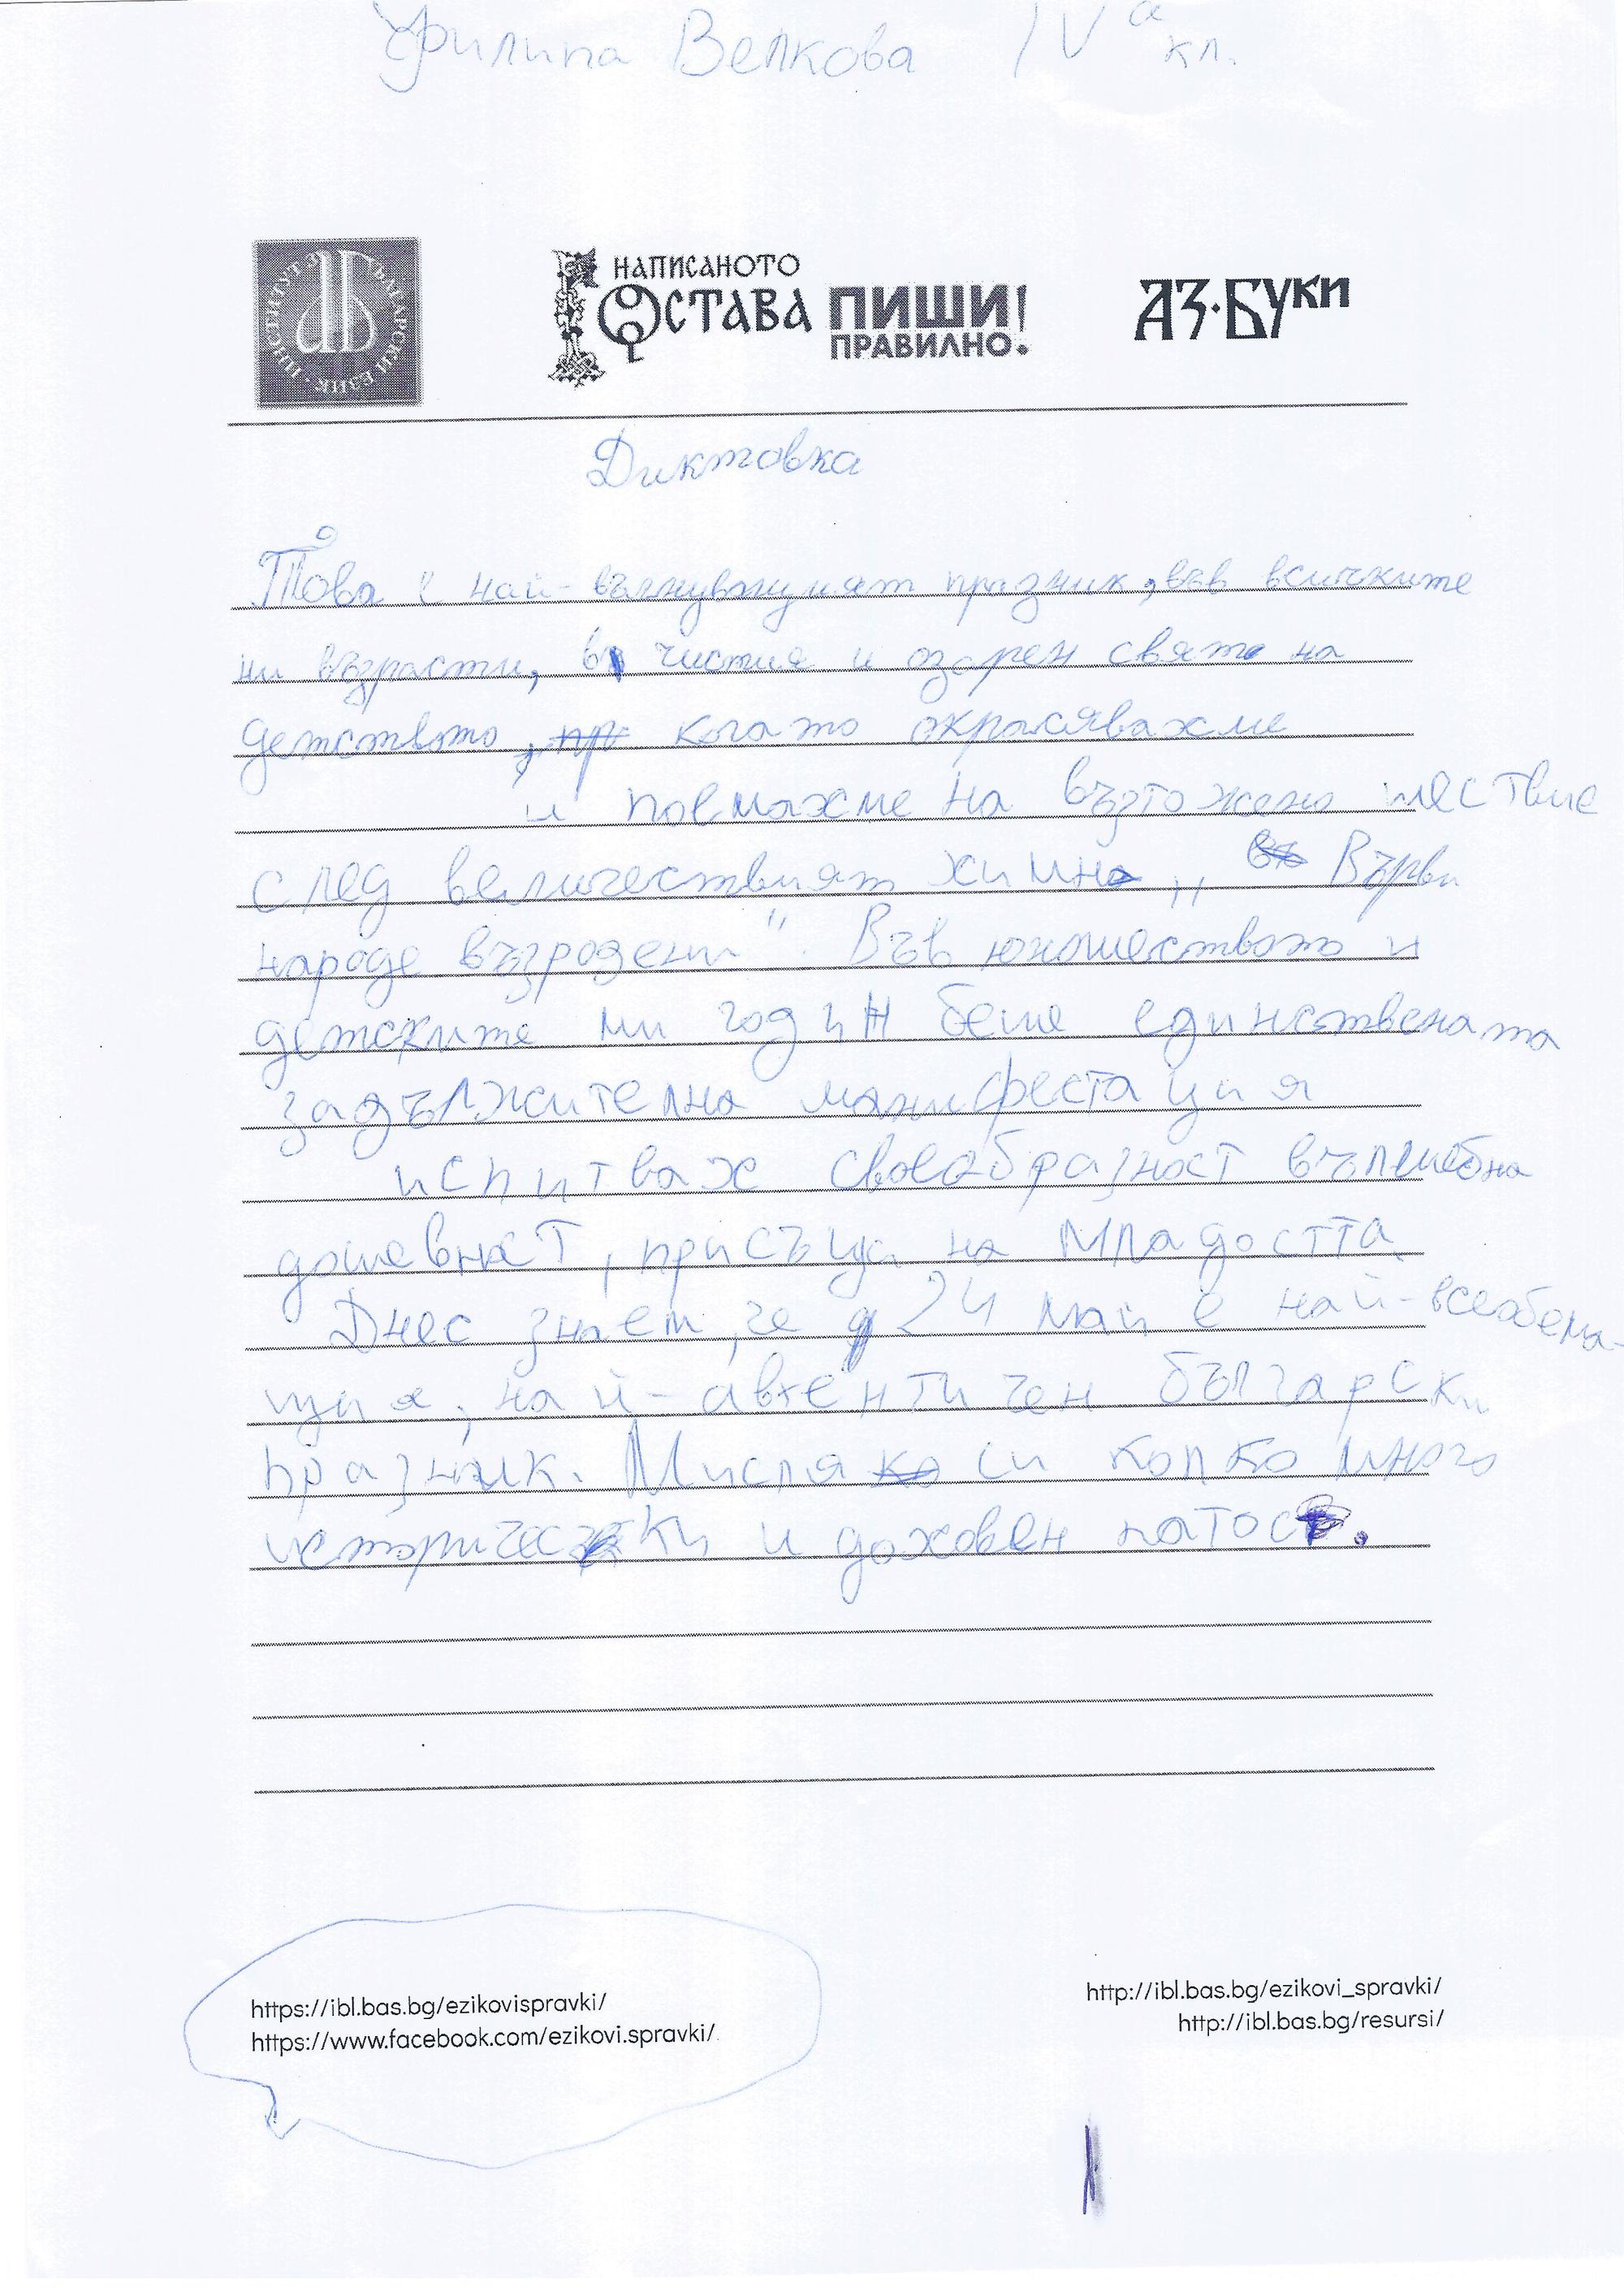 Филипа Велкова IV а кл.
ИНСТИТУТ ЗА БЪЛГАРСКИ ЕЗИК
НАПИСАНОТО
ОСТАВА ПИШИ!
ПРАВИЛНО!
АЗ·БУКИ
Диктовка
Това е най-вълнуващият празник, във всичките
ни възрасти, в чистия и озарен свят на
детството, когато окрасявахме
и поемахме на възтожено шествие
след величествият химн „ Върви
народе възродени". Във юношеството и
детските ми годин беше единствената
задължителна манифестация
испитвах своеобразност вълшебна
дошевност, присъща на младостта.
Днес знаем, че 24 май е най-всеобема-
щия, най-автентичен български
празник. Мисля си колко много
исторически и доховен патос.
https://ibl.bas.bg/ezikovispravki/
https://www.facebook.com/ezikovi.spravki/
http://ibl.bas.bg/ezikovi_spravki/
http://ibl.bas.bg/resursi/